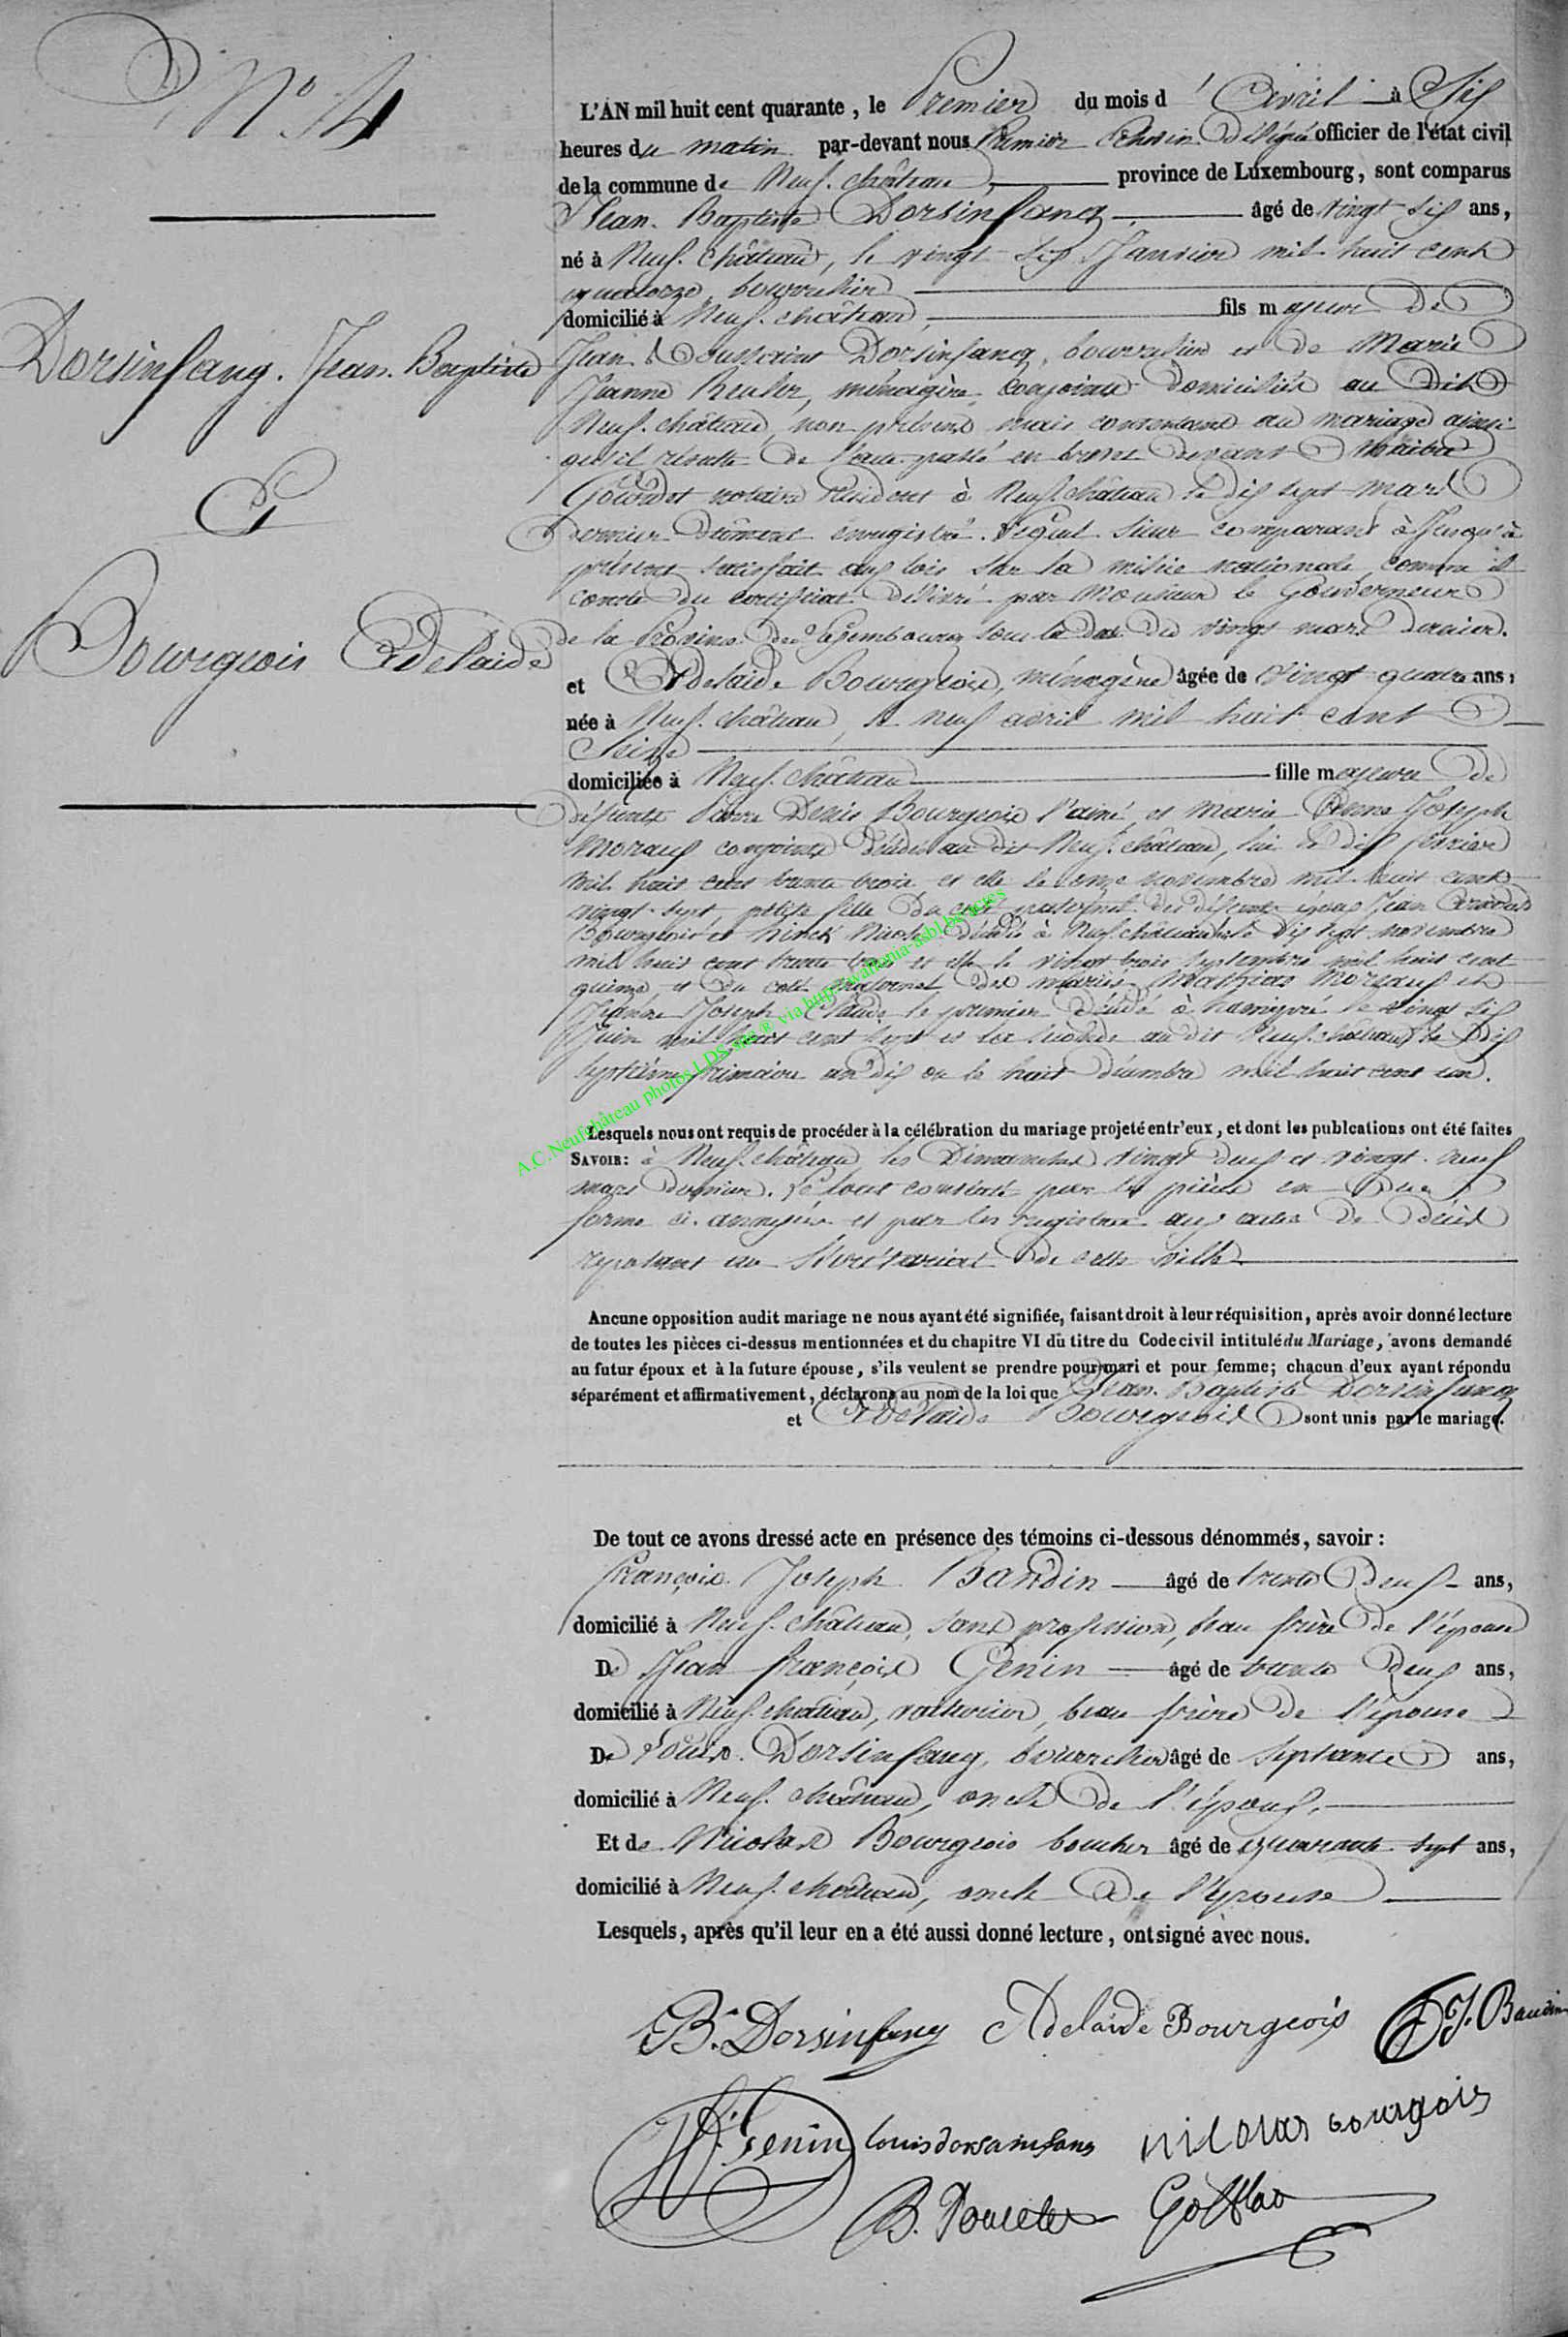 N° 4
Dorsinfang. Jean. Baptiste
Et
Bourgeois Adelaide
L'AN mil huit cent quarante, le Premier du mois d'Avril à Six
heures du matin par-devant nous Premier Echevin Délégué officier de l'état civil
de la commune de Neuf. château, province de Luxembourg, sont comparus
Jean. Baptiste Dorsinfang âgé de vingt six ans,
né à Neuf. Château, le vingt six Janvier mil huit cent
quatorze, bourrelier
domicilié à Neuf. château, fils majeur de
Jean Toussaint Dorsinfang, bourrelier et de Marie
Jeanne Reuler, ménagère, conjoints domiciliés au dit
Neuf. château, non présens mais consentans au mariage ainsi
qu'il résulte de l'acte passé en brevet devant Maître
notaire résident à Neuf. château le dix sept mars
dernier dûment enregistré. Lequel sieur comparant à Jusqu'à
présent satisfait aux lois sur la milice nationale comme il
conste du certificat délivré par Monsieur le Gouverneur
de la Province de Luxembourg sous la date du vingt mars dernier.
et Adelaide Bourgeois, ménagère âgée de vingt quatre ans,
née à Neuf. château, le neuf avril mil huit cent
Seize
domiciliée à Neuf. château fille majeure de
défunts Pierre Denis Bourgeois l'ainé, et Marie Anne Joseph
Moraux conjoints décédés au dit Neuf. château, lui le dix février
mil huit cent trente trois et elle le onze novembre mil huit cent
vingt. sept, petite fille du côté paternel des défunts époux Jean
Bourgeois et Nicole décédés à Neuf. château le dix sept novembre
mil huit cent trente trois et elle le vingt trois septembre mil huit cent
quinze, et du coté maternel des mariés Mathias Moreaux et
Jeanne Joseph Claude le premier décédé à hamipré le vingt six
Juin mil huit cent sept et la seconde au dit Neuf. château le Dix
Septième frimaire an dix ou le huit décembre mil huit cent un.
Lesquels nous ont requis de procéder à la célébration du mariage projeté entr'eux, et dont les publcations ont été faites
SAVOIR: à Neuf. château les Dimanches vingt deux et vingt. neuf
mars dernier. Le tout constaté par les pièces en due
forme ci. annexées et par les registres aux actes de décès
reposant au Secrétariat de cette ville
Aucune opposition audit mariage ne nous ayant été signifiée, faisant droit à leur réquisition, après avoir donné lecture
de toutes les pièces ci-dessus mentionnées et du chapitre VI du titre du Code civil intitulé du Mariage, avons demandé
au futur époux et à la future épouse, s'ils veulent se prendre pour mari et pour femme; chacun d'eux ayant répondu
séparément et affirmativement, déclarons au nom de la loi que Jean. Baptiste Dorsinfang
et Adelaide Bourgeois sont unis par le mariage.
De tout ce avons dressé acte en présence des témoins ci-dessous dénommés, savoir :
François Joseph Baudin âgé de trente Deux ans,
domicilié à Neuf. château, sans profession, beau frère de l'épouse
De Jean françois Genin âgé de trente Deux ans,
domicilié à Neuf. château, voiturier, beau frère de l'épouse
De Louis. Dorsinfang, bourrelier âgé de septante ans,
domicilié à Neuf. château, oncle de l'époux,
Et de Nicolas Bourgeois boucher âgé de quarante sept ans,
domicilié à Neuf. château, oncle de l'épouse
Lesquels, après qu'il leur en a été aussi donné lecture, ont signé avec nous.
B. Dorsinfang Adelaide Bourgeois F J. Baudin
Genin Louis dorsainfang nicolas bourgois
B. Poncelet Gofflao
A.C. Neufchâteau photos LDS site ® via http://wallonia-asbl.be/actes